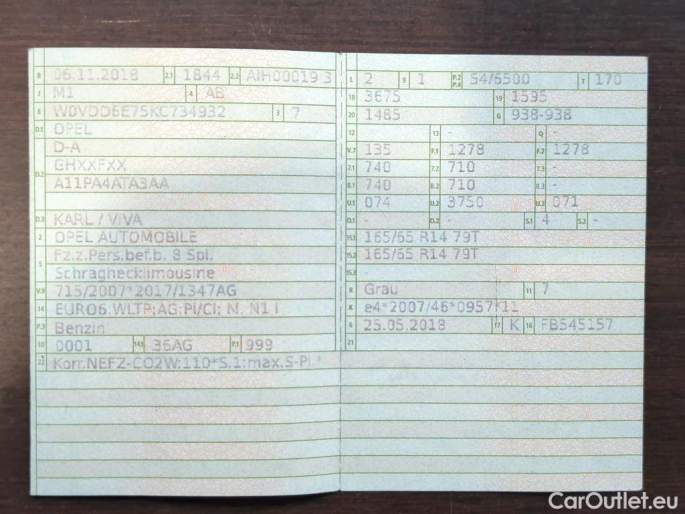 B 06.11.2018 2.1 1844 2.2 AIH00019 3
J M1 4 AB
E W0VDD6E75KC734932 3 7
D.1 OPEL
D-A
D.2 GHXXFXX
A11PA4ATA3AA
D.3 KARL / VIVA
2 OPEL AUTOMOBILE
5 Fz.z.Pers.bef.b. 8 Spl.
Schräghecklimousine
V.9 715/2007*2017/1347AG
14 EURO6.WLTP;AG:PI/CI; N, N1 I
P.3 Benzin
10 0001 14.1 36AG P.1 999
22 Korr.NEFZ-CO2W:110*S.1:max.S-Pl.*
L 2 9 1 P.2 P.4 54/6500 T 170
18 3675 19 1595
20 1485 G 938-938
12 - 13 - Q -
V.7 135 F.1 1278 F.2 1278
7.1 740 7.2 710 7.3 -
8.1 740 8.2 710 8.3 -
U.1 074 U.2 3750 U.3 071
O.1 - O.2 - S.1 4 S.2 -
15.1 165/65 R14 79T
15.2 165/65 R14 79T
15.3 -
R Grau 11 7
K e4*2007/46*0957*11
6 25.05.2018 17 K 16 FB545157
21
CarOutlet.eu